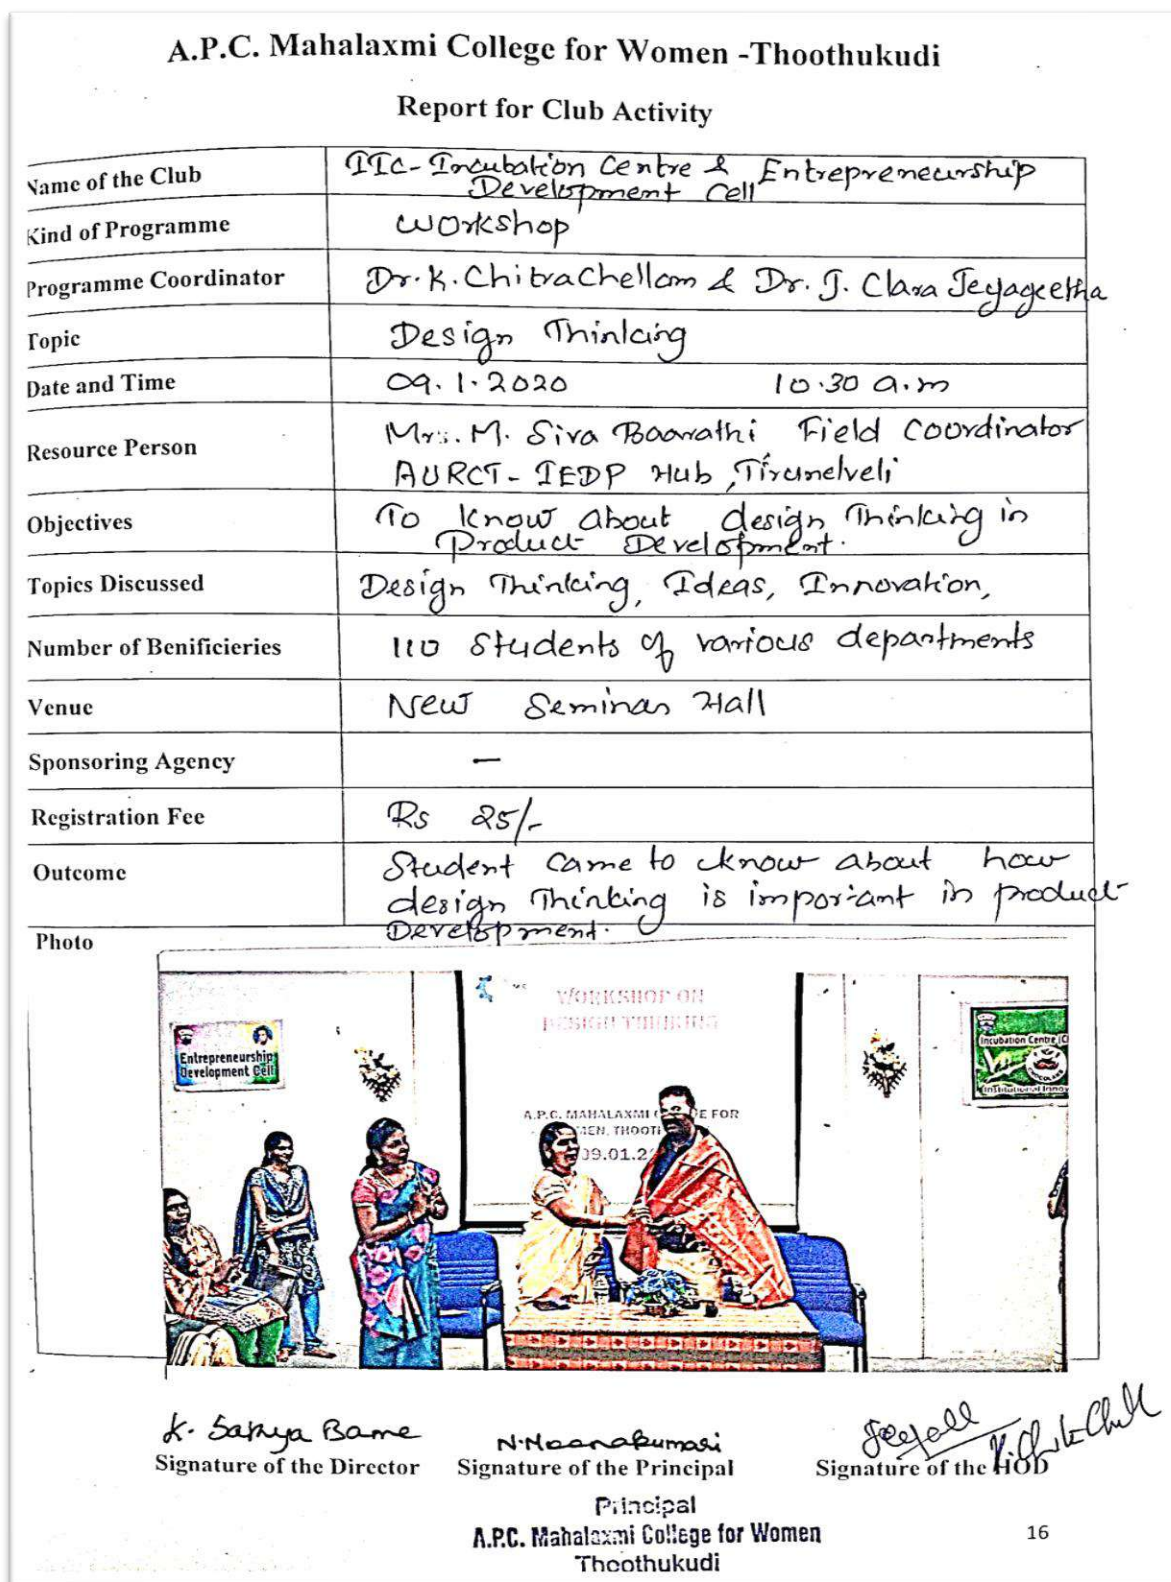 A.P.C. Mahalaxmi College for Women -Thoothukudi
Report for Club Activity
Name of the Club
IIC-Incubation Centre & Entrepreneurship
Development Cell
Kind of Programme
Workshop
Programme Coordinator
Dr. K. ChitraChellam & Dr. J. Clara Jeyageetha
Topic
Design Thinking
Date and Time
09.1.2020 10.30 a.m
Resource Person
Mrs. M. Siva Baarathi Field Coordinator
AURCT- IEDP Hub, Tirunelveli
Objectives
To know about design Thinking in
Product Development.
Topics Discussed
Design Thinking, Ideas, Innovation,
Number of Benificieries
110 Students of various departments
Venue
New Seminar Hall
Sponsoring Agency
—
Registration Fee
Rs 25/-
Outcome
Student came to know about how
design Thinking is important in product
Development.
Photo
WORKSHOP ON
DESIGN THINKING
Entrepreneurship
Development Cell
Incubation Centre
A.P.C. MAHALAXMI FOR
09.01.2
K. Sanya Bame
N. Meenakumari
Signature of the Director
Signature of the Principal
Signature of the HOD
Principal
A.P.C. Mahalaxmi College for Women
Thoothukudi
16